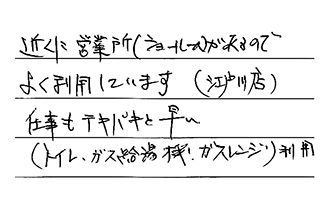 近くに営業所(ショールーム)が有るので
よく利用しています (江戸川店)
仕事もテキパキと早い
(トイレ、ガス給湯機!ガスレンジ)利用